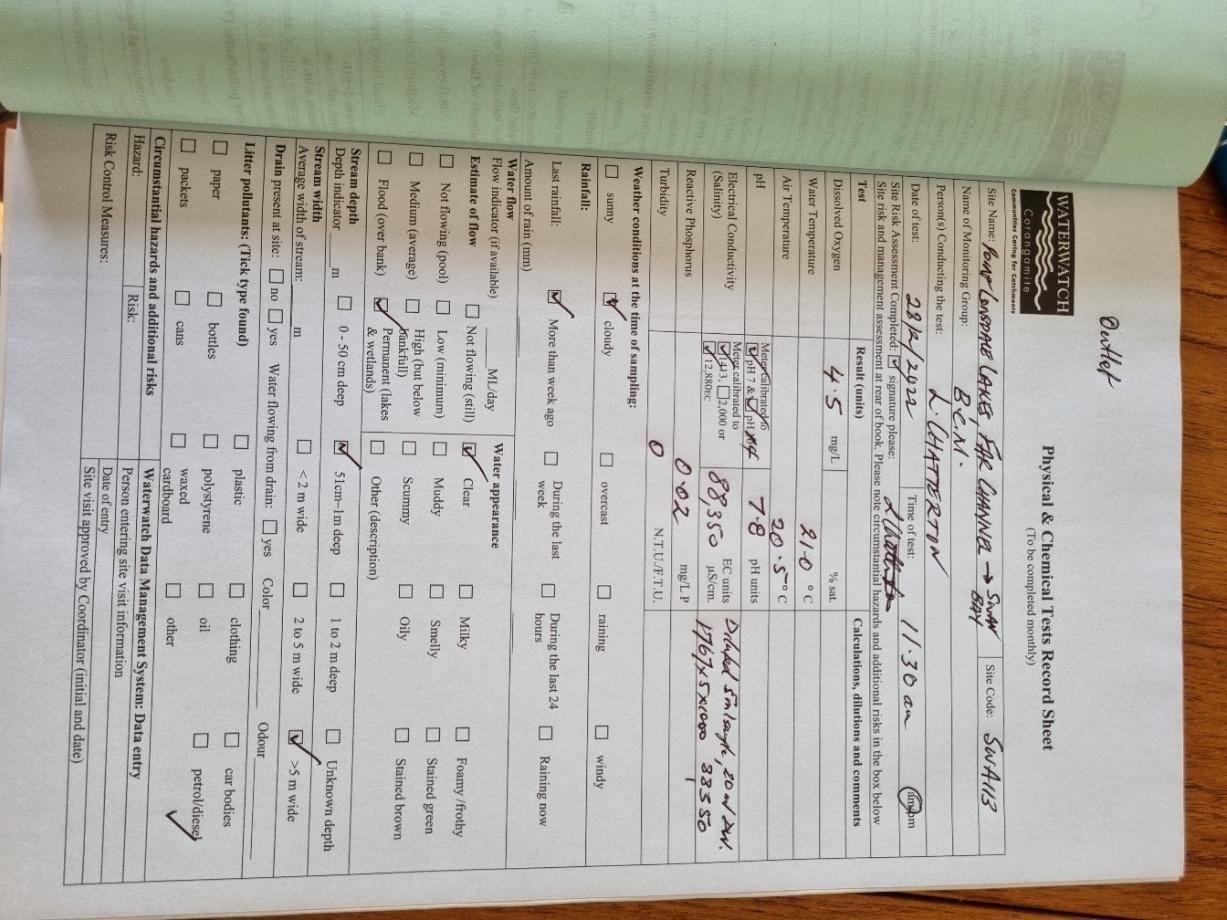 Outlet
WATERWATCH
Corangamite
Communities Caring for Catchments
Physical & Chemical Tests Record Sheet
(To be completed monthly)
Site Name: POINT LONSDALE LAKES, FAR CHANNEL → SWAN BAY Site Code: SWA113
Name of Monitoring Group: B.C.M.
Person(s) Conducting the test: L. CHATTERTON
Date of test: 28/2/2022 Time of test: 11.30 am am/pm
Site Risk Assessment Completed: signature please: LChatterton
Site risk and management assessment at rear of book. Please note circumstantial hazards and additional risks in the box below
Test Result (units) Calculations, dilutions and comments
Dissolved Oxygen 4.5 mg/L % sat.
Water Temperature 21.0 °C
Air Temperature 20.5 °C
pH Meter calibrated to pH 7 & pH 4 7.8 pH units
Electrical Conductivity (Salinity) Meter calibrated to 1413, 2,000 or 12,880EC 88,350 EC units µS/cm. Diluted 5ml sample, 20 ml
1767 x 5 x 1000 88350
Reactive Phosphorus 0.02 mg/L P
Turbidity 0 N.T.U./F.T.U.
Weather conditions at the time of sampling:
sunny cloudy overcast raining windy
Rainfall:
Last rainfall: More than week ago During the last week During the last 24 hours Raining now
Amount of rain (mm)
Water flow
Flow indicator (if available) ML/day
Estimate of flow Not flowing (still)
Not flowing (pool) Low (minimum)
Medium (average) High (but below bankfull)
Flood (over bank) Permanent (lakes & wetlands)
Water appearance
Clear Milky Foamy/frothy
Muddy Smelly Stained green
Scummy Oily Stained brown
Other (description)
Stream depth
Depth indicator m 0 - 50 cm deep 51cm-1m deep 1 to 2 m deep Unknown depth
Stream width
Average width of stream: m < 2 m wide 2 to 5 m wide >5 m wide
Drain present at site: no yes Water flowing from drain: yes Color Odour
Litter pollutants: (Tick type found)
plastic clothing car bodies
paper bottles polystyrene oil petrol/diesel
packets cans waxed cardboard other
Circumstantial hazards and additional risks
Hazard: Risk:
Risk Control Measures:
Waterwatch Data Management System: Data entry
Person entering site visit information
Date of entry
Site visit approved by Coordinator (initial and date)